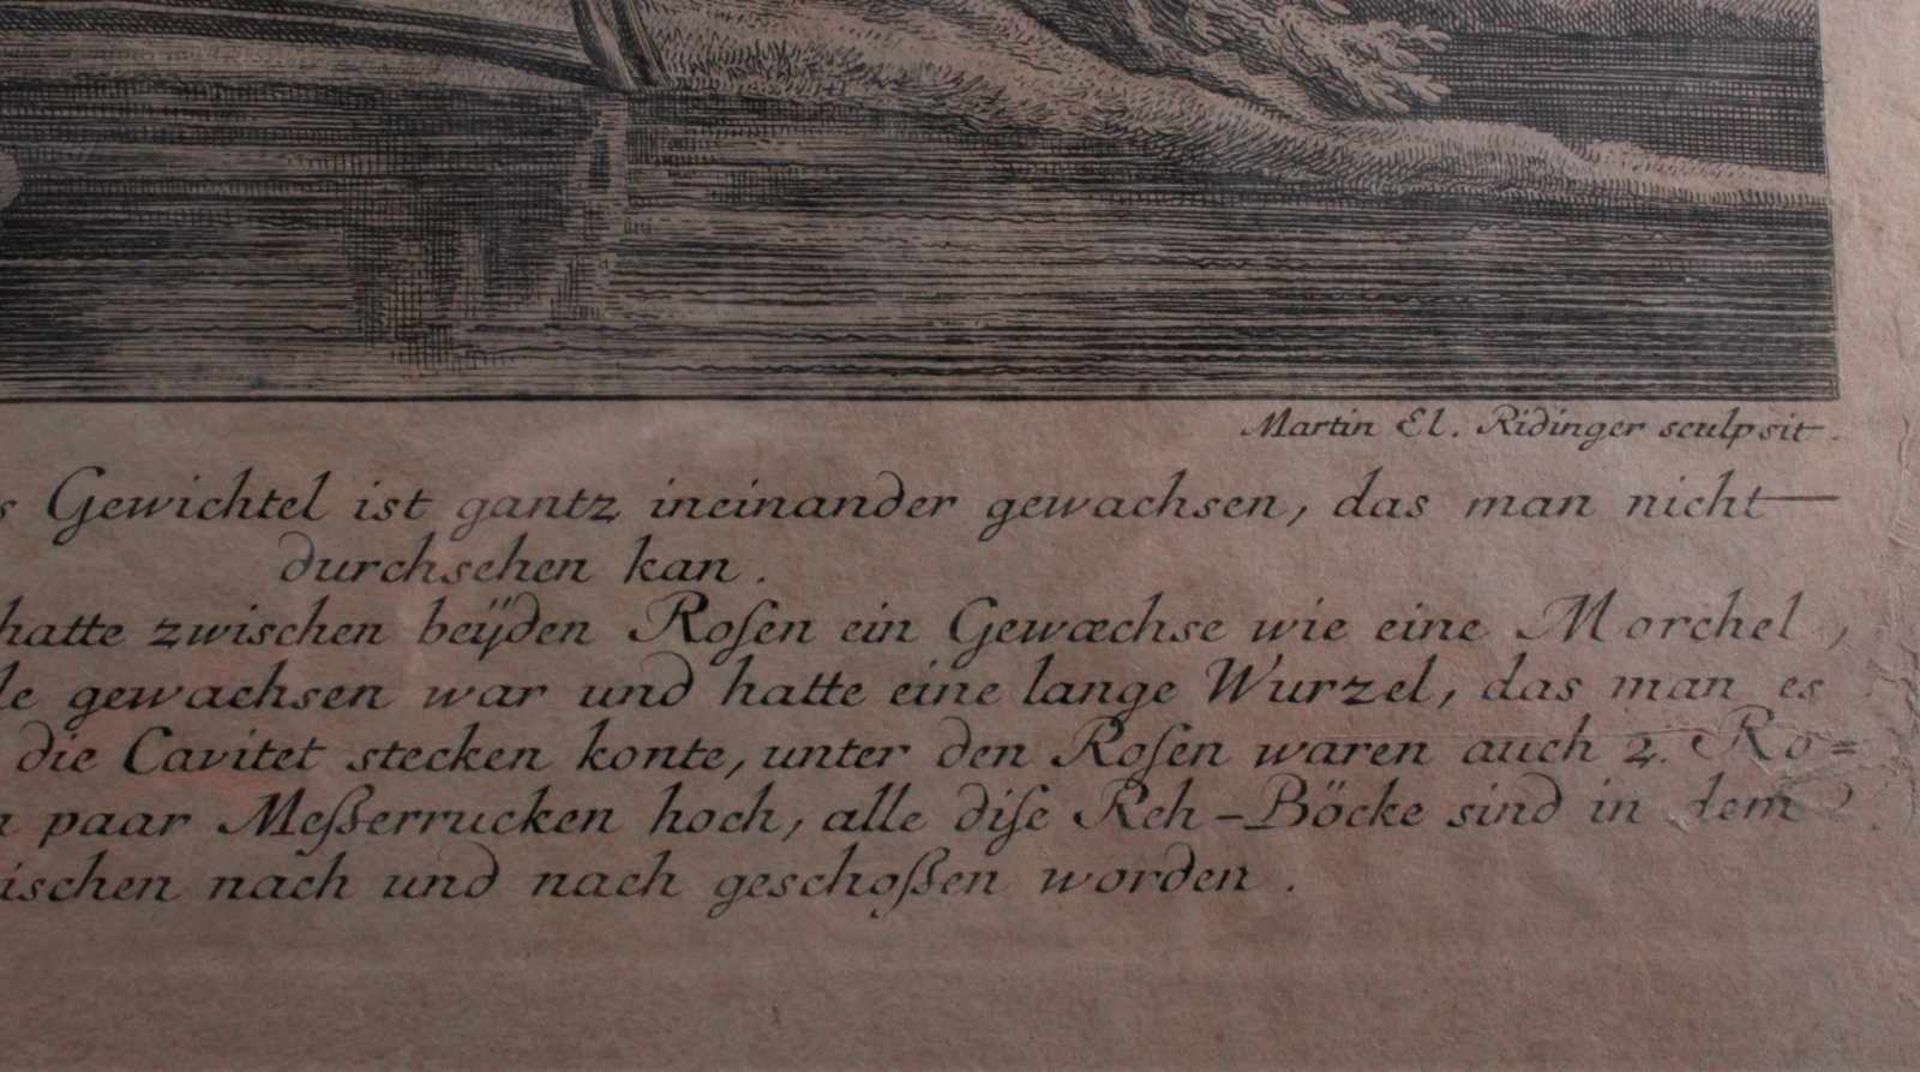 Martin El. Ridinger sculpsit.
Gewichtel ist gantz ineinander gewachsen, das man nicht—
durchsehen kan.
hatte zwischen beÿden Roſen ein Gewæchse wie eine Morchel,
gewachsen war und hatte eine lange Wurzel, das man es
die Cavitet stecken konte, unter den Roſen waren auch 2. Ro=
paar Meßerrucken hoch, alle diſe Reh-Böcke sind in dem
ischen nach und nach geschoßen worden.